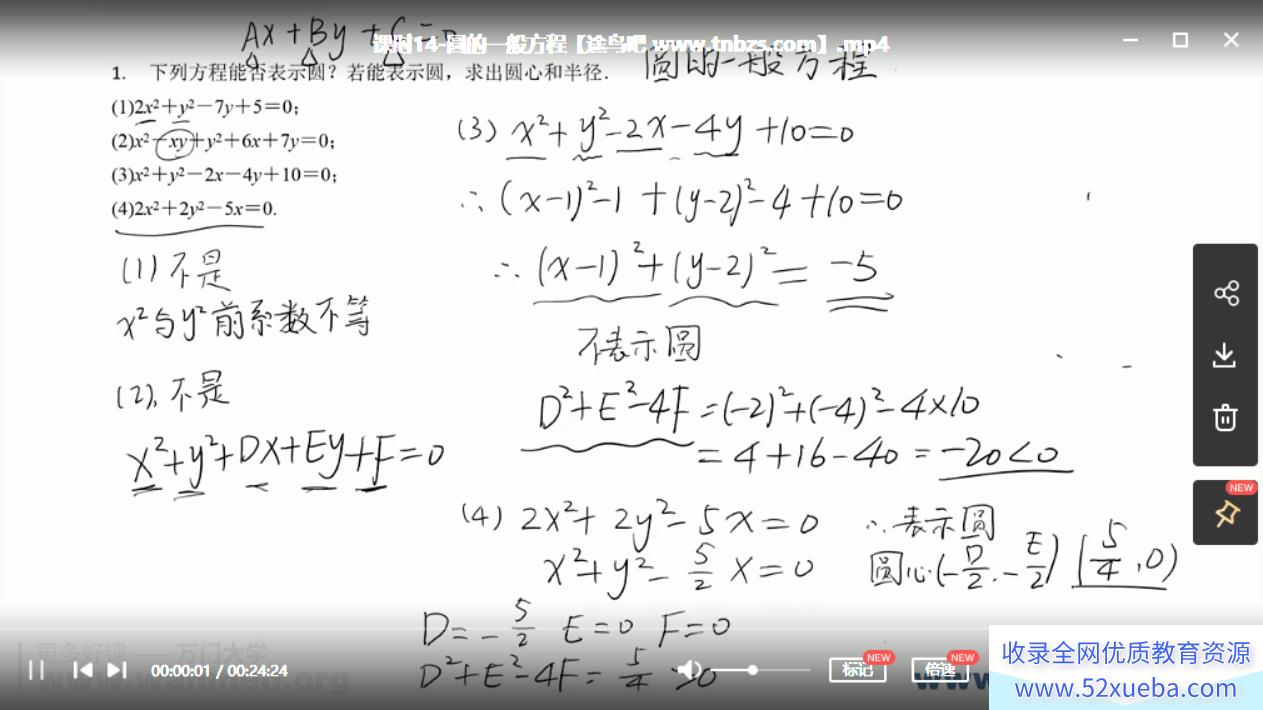 Ax + By + C = 0
课时14-圆的一般方程【途鸟吧 www.tnbzs.com】.mp4
1. 下列方程能否表示圆？若能表示圆，求出圆心和半径.
圆的一般方程
(1)2x²＋y²－7y＋5＝0；
(2)x²－xy＋y²＋6x＋7y＝0；
(3)x²＋y²－2x－4y＋10＝0；
(4)2x²＋2y²－5x＝0.
(1)不是
x²与y²前系数不等
(2).不是
x²+y²+Dx+Ey+F=0
(3) x²+y²-2x-4y+10=0
∴(x-1)²-1+(y-2)²-4+10=0
∴(x-1)²+(y-2)²=-5
不表示圆
D²+E²-4F=(-2)²+(-4)²-4×10
=4+16-40=-20<0
(4) 2x²+2y²-5x=0
x²+y²-5/2 x=0
D=-5/2 E=0 F=0
D²+E²-4F=5/4 >0
∴表示圆
圆心(-D/2.-E/2) (5/4,0)
NEW
更多好课 —— 万门大学
00:00:01 / 00:24:24
标记
NEW
倍速
NEW
收录全网优质教育资源
www.52xueba.com